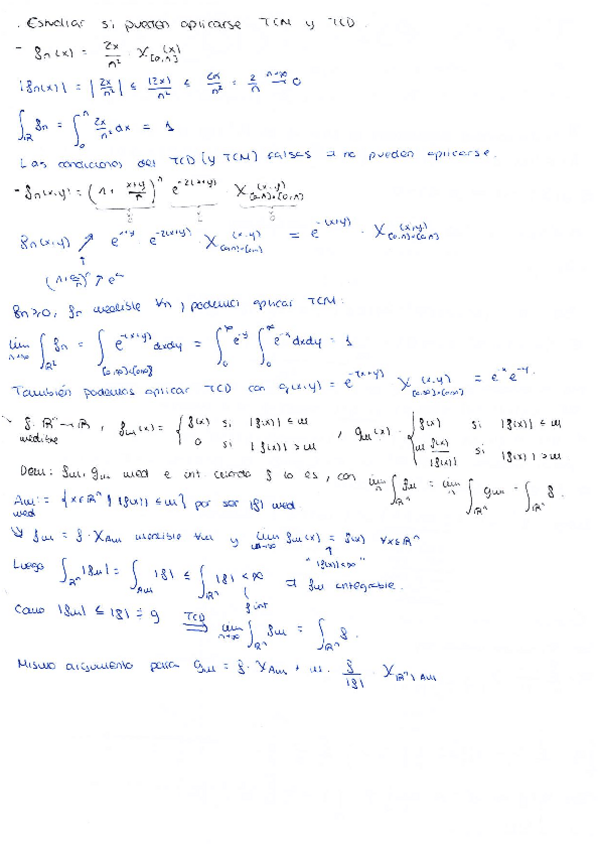 . Estudiar si pueden aplicarse TCM y TCD.
- fn(x) = 2x/n² · X[0,n](x)
|fn(x)| = |2x/n²| ≤ |2x|/n² ≤ 2n/n² = 2/n → 0 (n→∞)
∫_ℝ fn = ∫_0^n 2x/n² dx = 1
Las condiciones del TCD (y TCM) falsas ⇒ no pueden aplicarse.
- fn(x,y) = (1 + (x+y)/n)^n e^{-2(x+y)} X[0,n]×[0,n](x,y)
fn(x,y) ↗ e^{x+y} e^{-2(x+y)} X[0,∞)×[0,∞)(x,y) = e^{-(x+y)} · X[0,∞)×[0,∞)(x,y)
fn≥0, fn medible ∀n, podemos aplicar TCM:
lim_{n→∞} ∫_{ℝ²} fn = ∫_{[0,∞)×[0,∞)} e^{-(x+y)} dxdy = ∫_0^∞ e^{-y} ∫_0^∞ e^{-x} dxdy = 1
También podemos aplicar TCD con g(x,y) = e^{-(x+y)} X[0,∞)×[0,∞)(x,y) = e^{-x} e^{-y}.
f: ℝⁿ → ℝ medible, fm(x) = { f(x) si |f(x)| ≤ m ; 0 si |f(x)| > m , gm(x) = { f(x) si |f(x)| ≤ m ; m f(x)/|f(x)| si |f(x)| > m
Dem: fm, gm med e int. cuando f lo es, con lim ∫_{ℝⁿ} fm = lim ∫_{ℝⁿ} gm = ∫_{ℝⁿ} f.
Am := {x∈ℝⁿ | |f(x)| ≤ m} med por ser |f| med.
fm = f · X_{Am} medible ∀m y lim_{m→∞} fm(x) = f(x) ∀x∈ℝⁿ
"|f(x)|<∞"
Luego ∫_{ℝⁿ} |fm| = ∫_{Am} |f| ≤ ∫_{ℝⁿ} |f| < ∞ ⇒ fm integrable.
f int
Como |fm| ≤ |f| = g ⟹ (TCD) lim_{n→∞} ∫_{ℝⁿ} fm = ∫_{ℝⁿ} f.
Mismo argumento para gm = f · X_{Am} + m · f/|f| · X_{ℝⁿ\Am}